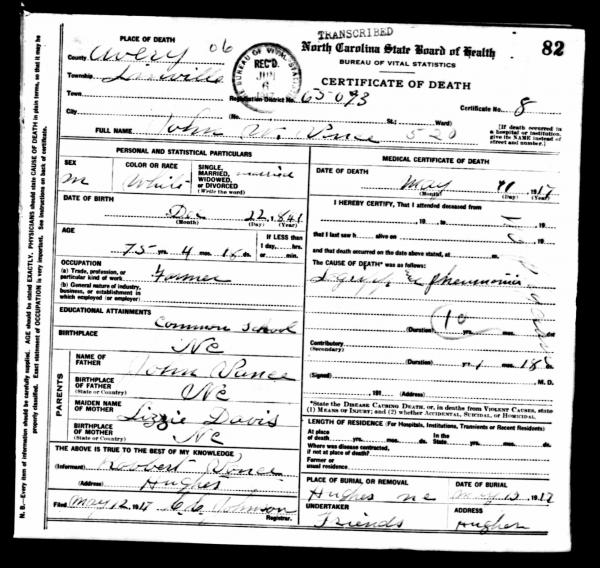 TRANSCRIBED
82
North Carolina State Board of Health
BUREAU OF VITAL STATISTICS
CERTIFICATE OF DEATH
PLACE OF DEATH
County Avery 06
Township Linville
BUREAU OF VITAL STATISTICS
REC'D.
6
Town
Registration District No. 65-093
Certificate No. 8
City (No. St.; Ward)
[If death occurred in a hospital or institution, give its NAME instead of street and number.]
FULL NAME John W. Vance 520
PERSONAL AND STATISTICAL PARTICULARS
SEX
m
COLOR OR RACE
White
SINGLE, MARRIED, WIDOWED, or DIVORCED
(Write the word)
married
DATE OF BIRTH
Dec 22, 1841
(Month) (Day) (Year)
AGE
75 yrs. 4 mos. 16 ds.
IF LESS than 1 day, hrs. or min.
OCCUPATION
(a) Trade, profession, or particular kind of work
Farmer
(b) General nature of industry, business, or establishment in which employed (or employer)
EDUCATIONAL ATTAINMENTS
Common School
BIRTHPLACE
NC
PARENTS
NAME OF FATHER
John Vance
BIRTHPLACE OF FATHER
(State or Country)
NC
MAIDEN NAME OF MOTHER
Lizzie Davis
BIRTHPLACE OF MOTHER
(State or Country)
NC
THE ABOVE IS TRUE TO THE BEST OF MY KNOWLEDGE
(Informant) Robbert Vance
(Address) Hughes
Filed May 12 1917 Johnson
Registrar.
MEDICAL CERTIFICATE OF DEATH
DATE OF DEATH
May 11 1917
(Month) (Day) (Year)
I HEREBY CERTIFY, That I attended deceased from
, 19 , to , 19
that I last saw h alive on , 19
and that death occurred on the date above stated, at m.
The CAUSE OF DEATH* was as follows:
Lagrippe & pneumonia
10
(Duration) yrs. mos. ds.
Contributory
(Secondary)
(Duration) yrs. 1 mos. 18 ds.
(Signed) M. D.
, 191 (Address)
*State the DISEASE CAUSING DEATH, or, in deaths from VIOLENT CAUSES, state (1) MEANS OF INJURY; and (2) whether ACCIDENTAL, SUICIDAL, or HOMICIDAL.
LENGTH OF RESIDENCE (For Hospitals, Institutions, Transients or Recent Residents)
At place of death yrs. mos. ds. In the State yrs. mos. ds.
Where was disease contracted, if not at place of death?
Former or usual residence
PLACE OF BURIAL OR REMOVAL
Hughes NC
DATE OF BURIAL
May 13, 1917
UNDERTAKER
Friends
ADDRESS
Hughes
N. B.—Every item of information should be carefully supplied. AGE should be stated EXACTLY. PHYSICIANS should state CAUSE OF DEATH in plain terms, so that it may be properly classified. Exact statement of OCCUPATION is very important. See instructions on back of certificate.